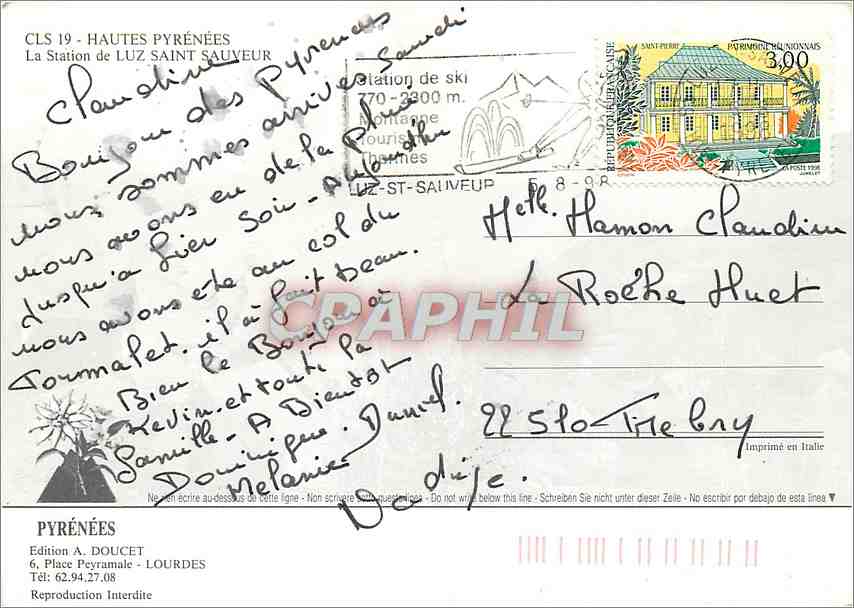 CLS 19 - HAUTES PYRÉNÉES
La Station de LUZ SAINT SAUVEUR
Claudine
Bonjour des Pyrenees
nous sommes arrives Samedi
nous avons eu de la Pluie
Jusqu'a hier soir - Aujourd'hu
nous avons été au col du
Tourmalet. il a fait beau.
Bien le Bonjour à
Kevin et toute la
famille - A Bientot
Dominique. Daniel.
Melanie
Nadège.
Station de ski
770-2300 m.
Montagne
Tourisme
Thermes
LUZ-ST-SAUVEUR 5-8-98
SAINT-PIERRE
PATRIMOINE RÉUNIONNAIS
3,00
RÉPUBLIQUE FRANÇAISE
LA POSTE 1998
JUMELET
Melle Hamon Claudine
La Roche Huet
22510 - Trebry
CPAPHIL
Imprimé en Italie
Ne rien écrire au-dessous de cette ligne - Non scrivere sotto queste linea - Do not write below this line - Schreiben Sie nicht unter dieser Zeile - No escribir por debajo de esta línea ▼
PYRÉNÉES
Edition A. DOUCET
6, Place Peyramale - LOURDES
Tél: 62.94.27.08
Reproduction Interdite